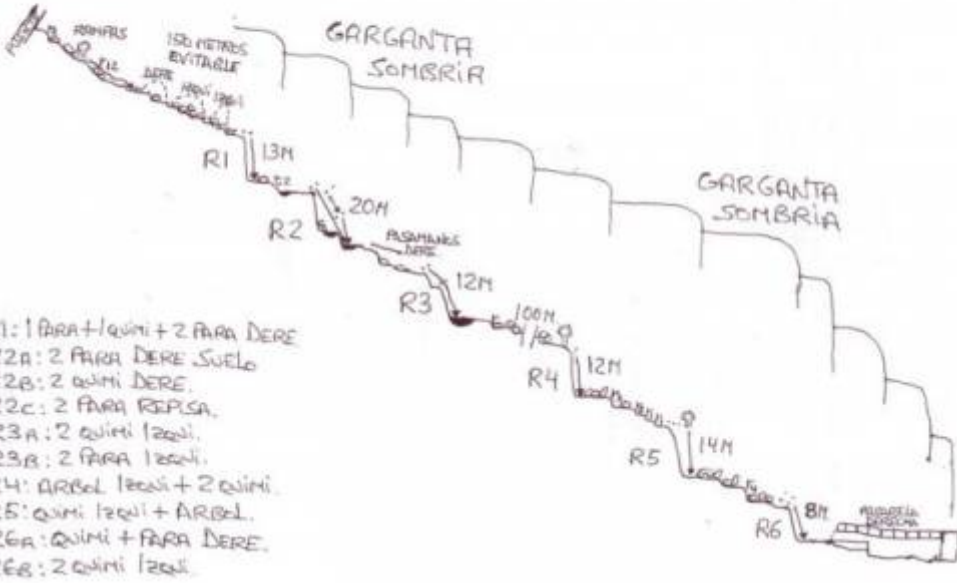 RAMPAS
R12
150 METROS
EVITABLE
DERE
IZQUI
GARGANTA
SOMBRIA
R1
13M
R2
20M
PASAMANOS
DERE
R3
12M
100M
R4
12M
GARGANTA
SOMBRIA
R5
14M
R6
8M
1: 1 PARA+1QUIMI + 2 PARA DERE
2A: 2 PARA DERE SUELO
2B: 2 QUIMI DERE.
2C: 2 PARA REPISA.
3A: 2 QUIMI IZQUI.
3B: 2 PARA IZQUI.
4: ARBOL IZQUI + 2 QUIMI.
5: QUIMI IZQUI + ARBOL.
6A: QUIMI + PARA DERE.
6B: 2 QUIMI IZQUI.